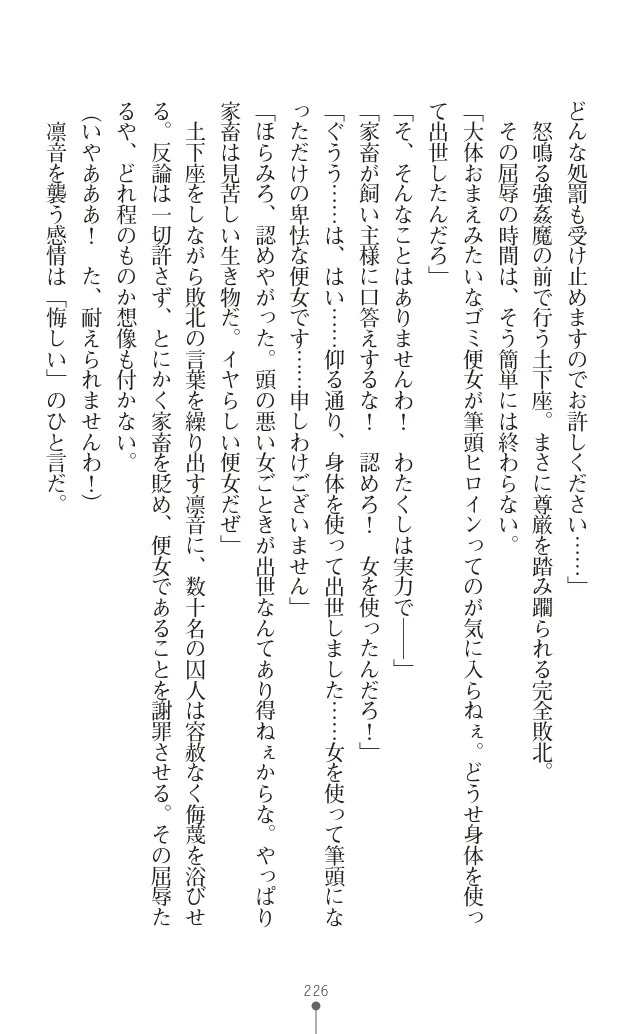 どんな処罰も受け止めますのでお許しください……」
　怒鳴る強姦魔の前で行う土下座。まさに尊厳を踏み躙られる完全敗北。
　その屈辱の時間は、そう簡単には終わらない。
「大体おまえみたいなゴミ便女が筆頭ヒロインってのが気に入らねぇ。どうせ身体を使っ
て出世したんだろ」
「そ、そんなことはありませんわ！　わたくしは実力で――」
「家畜が飼い主様に口答えするな！　認めろ！　女を使ったんだろ！」
「ぐうう……は、はい……仰る通り、身体を使って出世しました……女を使って筆頭にな
っただけの卑怯な便女です……申しわけございません」
「ほらみろ、認めやがった。頭の悪い女ごときが出世なんてあり得ねぇからな。やっぱり
家畜は見苦しい生き物だ。イヤらしい便女だぜ」
　土下座をしながら敗北の言葉を繰り出す凛音に、数十名の囚人は容赦なく侮蔑を浴びせ
る。反論は一切許さず、とにかく家畜を貶め、便女であることを謝罪させる。その屈辱た
るや、どれ程のものか想像も付かない。
（いやああぁ！　た、耐えられませんわ！）
　凛音を襲う感情は「悔しい」のひと言だ。
226